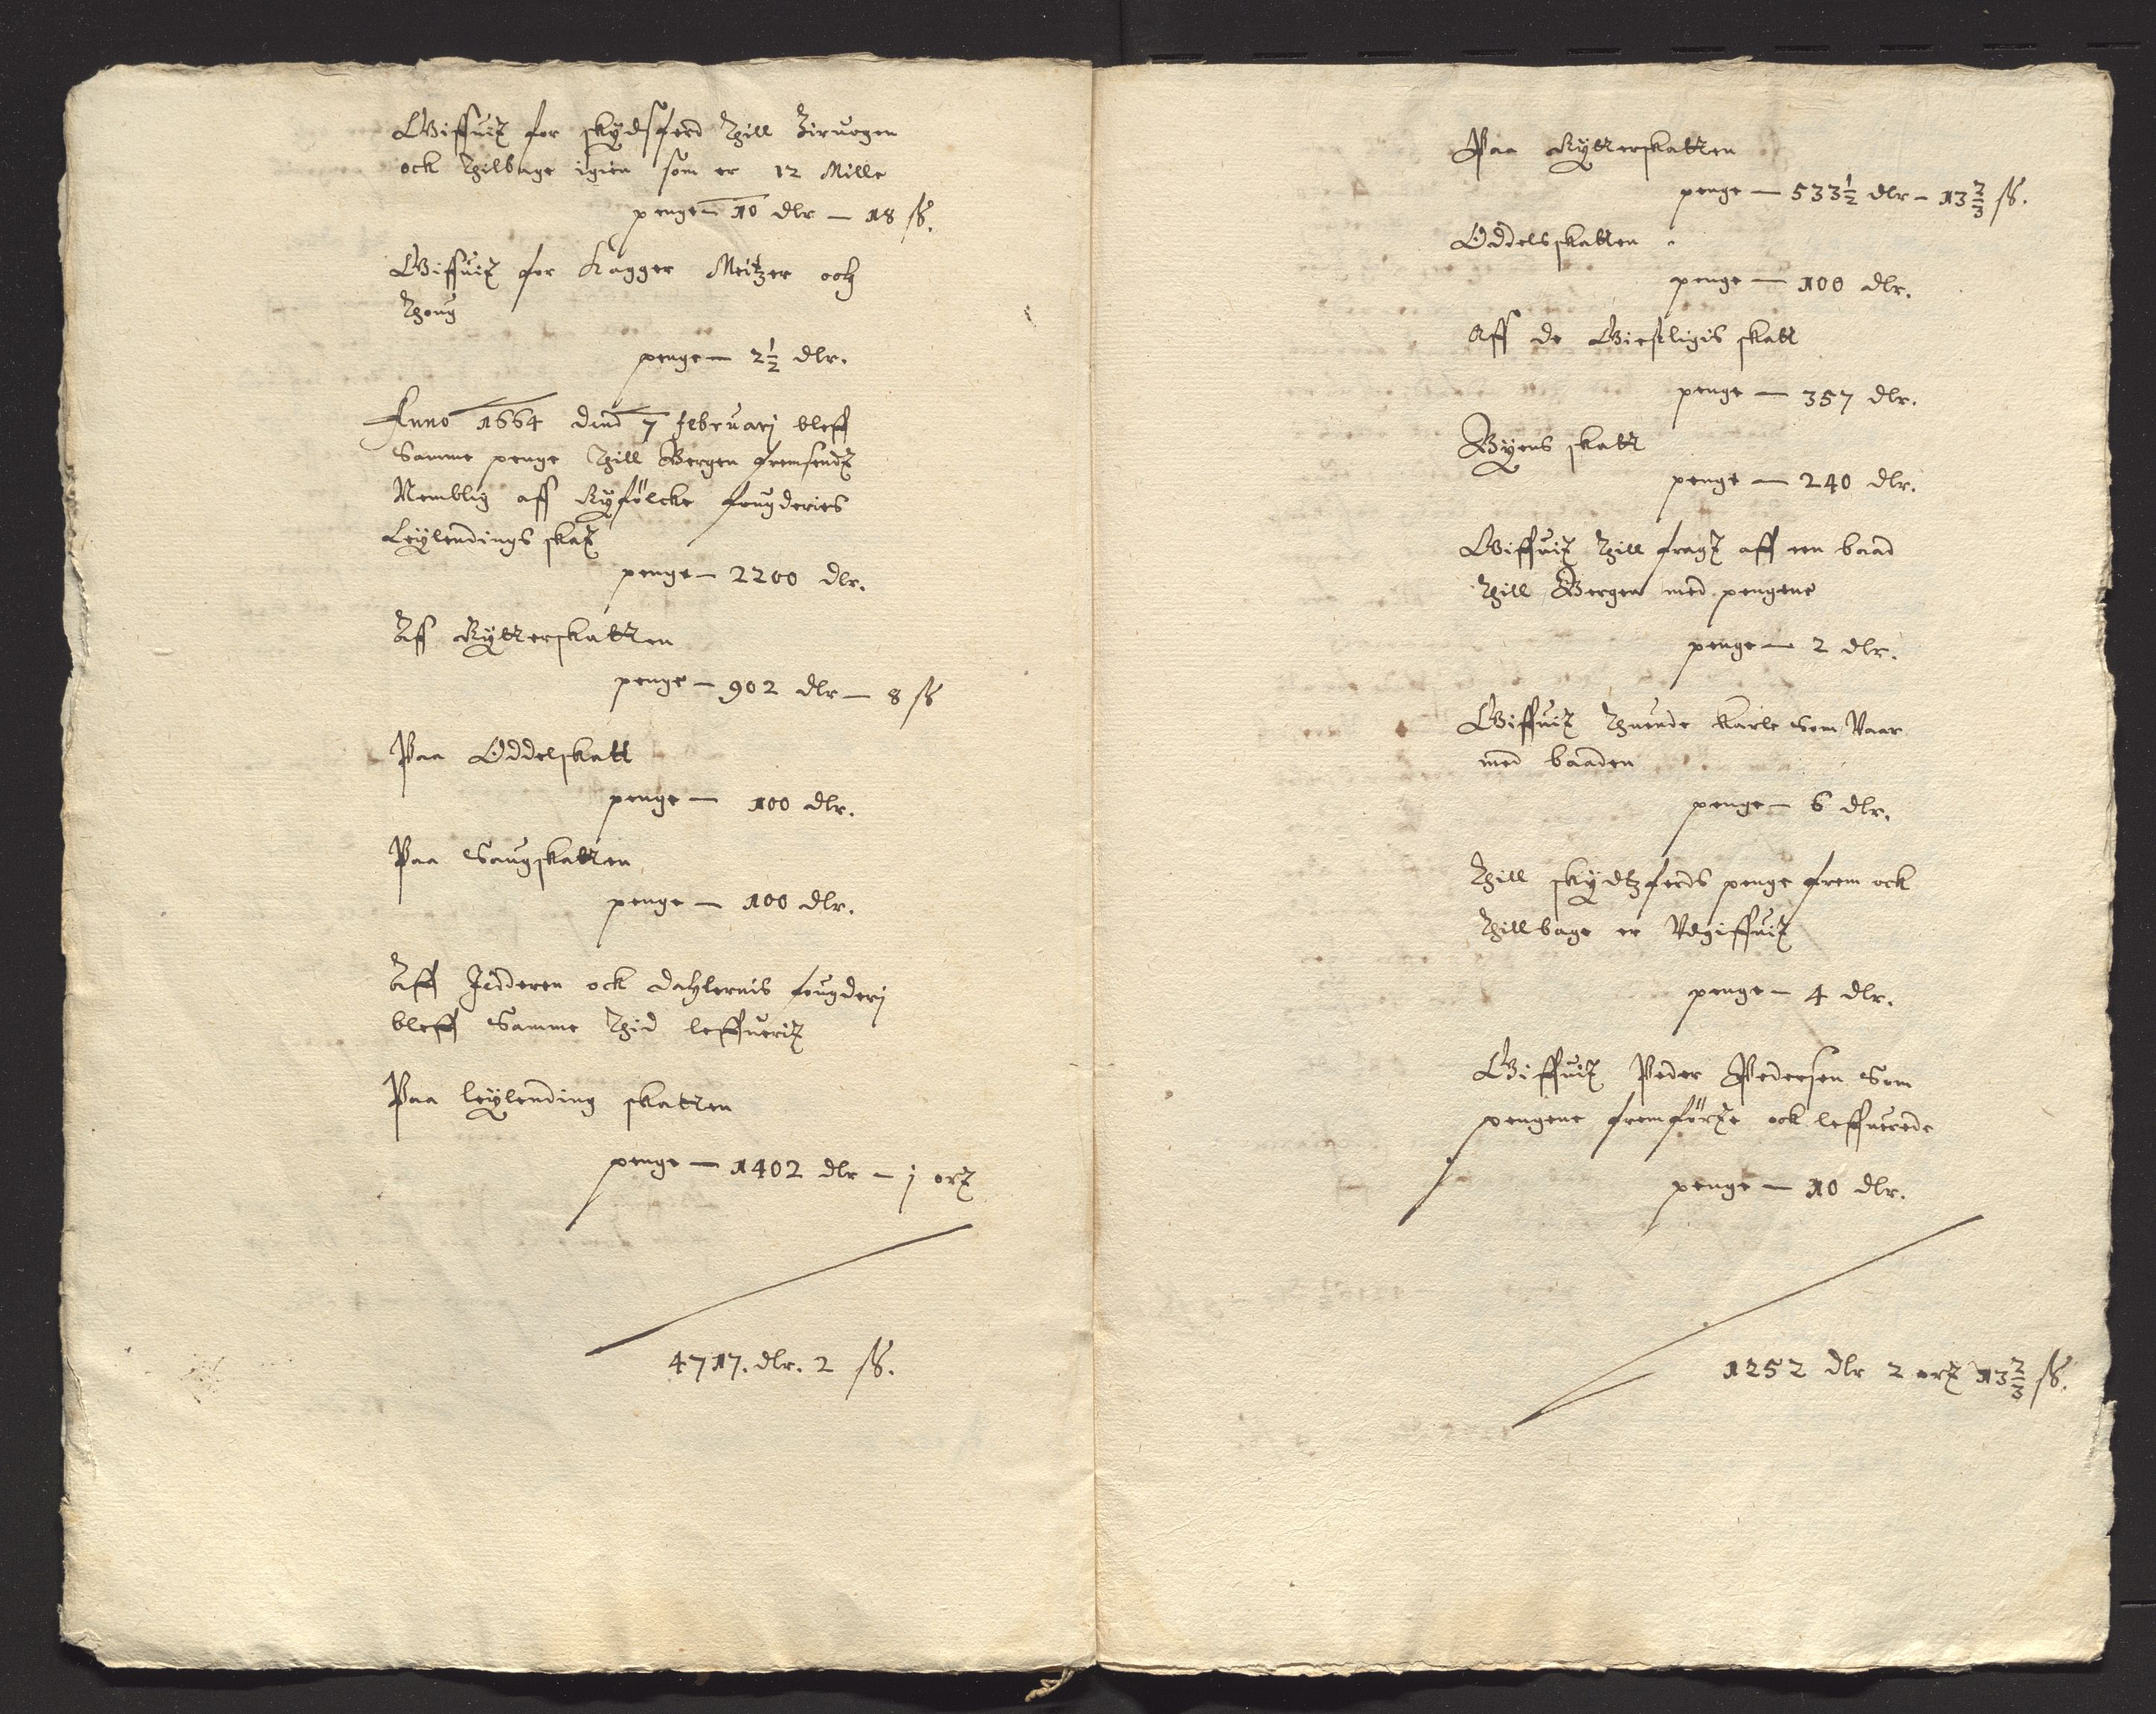 Giffuit for skydsferd thill Ziruogen
ock thilbage igien som er 12 Mille
penge — 10 dlr — 18 ß.
Giffuit for Kagger Meitzer och
thoug
penge — 2½ dlr.
Anno 1664 dend 7 februarj bleff
Samme penge thill Bergen fremsendt
Nemblig aff Ryfölcke fougderies
Leylendings skat
penge — 2200 dlr.
Aff Rytterskatten
penge — 902 dlr — 8 ß
Paa Oddelskatt
penge — 100 dlr.
Paa Saugskatten
penge — 100 dlr.
Aff Jedderen ock dahlernis fougderj
bleff Samme thid leffuerit
Paa leylending skatten
penge — 1402 dlr — j ort
4717. dlr. 2 ß.
Paa Rytterskatten
penge — 533½ dlr — 13⅔ ß.
Oddelsskatten
penge — 100 dlr.
Aff de Giestligis skatt
penge — 357 dlr.
Byens skatt
penge — 240 dlr.
Giffuit thill fragt aff een baad
thill Bergen med pengene
penge — 2 dlr.
Giffuit thuende Karle som Vaar
med baaden
penge — 6 dlr.
Thill skydtzferds penge frem ock
thillbage er Vdgiffuit
penge — 4 dlr.
Giffuit Peder Pedersen Som
pengene fremförte ock leffuerede
penge — 10 dlr.
1252 dlr 2 ort 13⅔ ß.